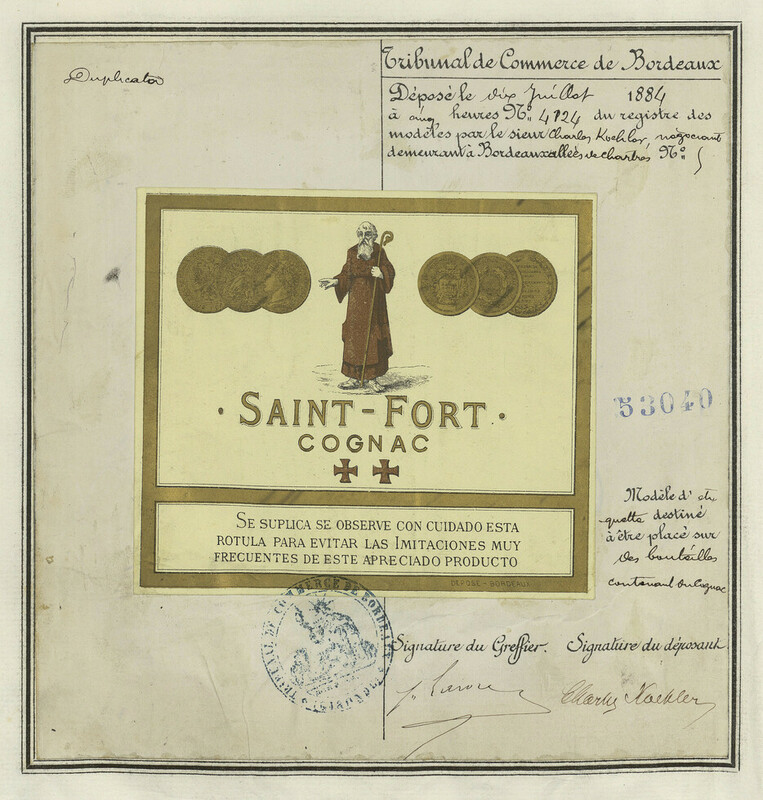 Duplicata
Tribunal de Commerce de Bordeaux
Déposé le dix Juillot 1884
à cinq heures Nº 4124 du registre des
modèles par le sieur Charles Koehler, négociant
demeurant à Bordeaux allées de chartres Nº 5
· SAINT-FORT ·
COGNAC
SE SUPLICA SE OBSERVE CON CUIDADO ESTA
ROTULA PARA EVITAR LAS IMITACIONES MUY
FRECUENTES DE ESTE APRECIADO PRODUCTO
DÉPOSÉ - BORDEAUX
53040
Modèle d' éti
quette destiné
à être placé sur
des bouteilles
contenant du Cognac
TRIBUNAL DE COMMERCE DE BORDEAUX
Signature du Greffier. Signature du déposant
Charles Koehler